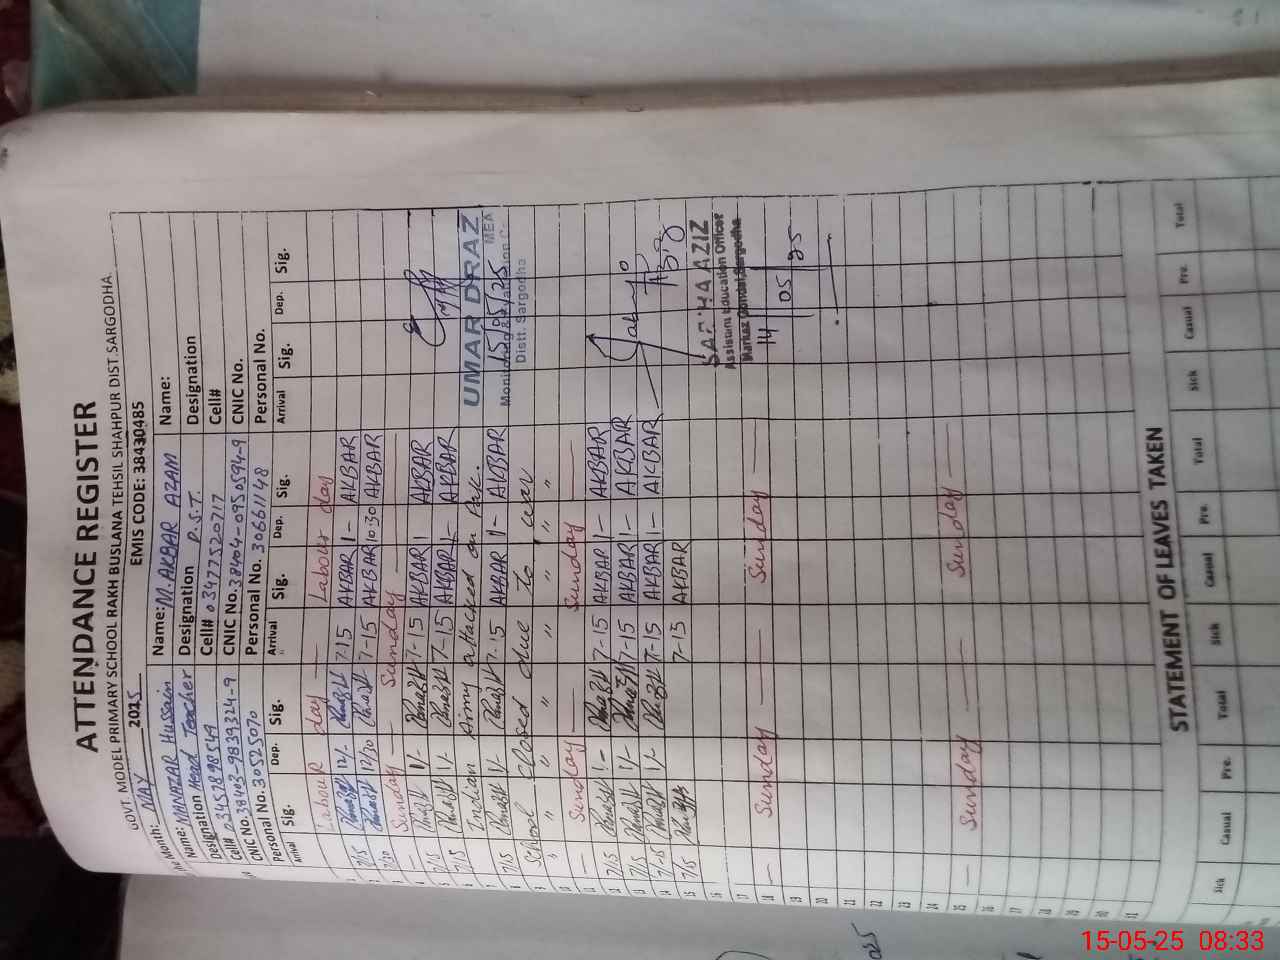 ATTENDANCE REGISTER
GOVT. MODEL PRIMARY SCHOOL RAKH BUSLANA TEHSIL SHAHPUR DIST.SARGODHA.
Month: MAY 2025 EMIS CODE: 38430485
Name: MANAZAR Hussain Name: M. AKBAR AZAM Name:
Designation Head Teacher Designation P.S.T. Designation
Cell# 03457898549 Cell# 03477520717 Cell#
CNIC No. 38403-9839324-9 CNIC No. 38404-0950594-9 CNIC No.
Personal No. 30525070 Personal No. 30661148 Personal No.
Arrival Sig. Dep. Sig. Arrival Sig. Dep. Sig. Arrival Sig. Dep. Sig.
1 Labour day — Labour day
2 7/15 12/- 7-15 AKBAR 1- AKBAR
3 7/30 12/30 7-15 AKBAR 10:30 AKBAR
4 — Sunday — Sunday —
5 7/15 1/- 7-15 AKBAR 1- AKBAR
6 7/15 1/- 7-15 AKBAR 1- AKBAR
Indian Army attacked on Pak.
7 7/15 1/- 7-15 AKBAR 1- AKBAR
8 School closed due to war
9 " " " " " " "
10
11 — Sunday — Sunday —
12 7/15 1- 7-15 AKBAR 1- AKBAR
13 7/15 1/- 7-15 AKBAR 1- AKBAR
14 7-15 1/- 7-15 AKBAR 1- AKBAR
15 7/15 7-15 AKBAR
16
17
18 — Sunday — Sunday —
19
20
21
22
23
24
25 — Sunday — Sunday —
26
27
28
29
30
31
UMAR DRAZ
MEA
15/05/25
Distt. Sargodha
AZIZ
Assistant Education Officer
Markaz Gondal, Sargodha
14 05 25
STATEMENT OF LEAVES TAKEN
Sick Casual Pre. Total Sick Casual Pre. Total Sick Casual Pre. Total
15-05-25 08:33